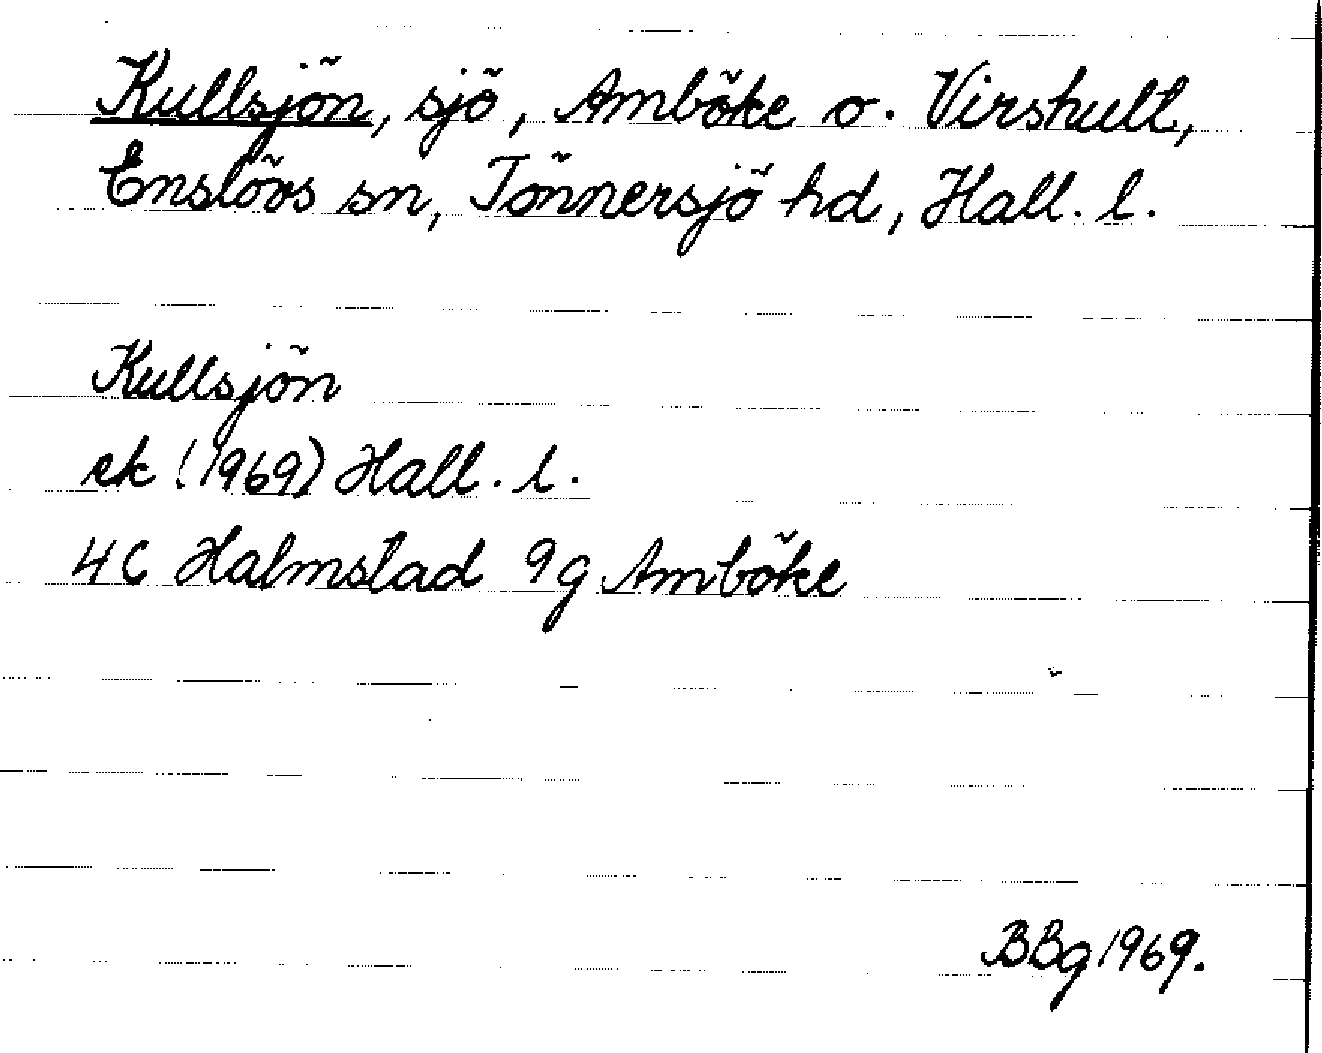 Kullsjön, sjö, Amböke o. Virshult,
Enslövs sn, Tönnersjö hd, Hall. l.
Kullsjön
ek (1969) Hall. l.
4C Halmstad 9g Amböke
BBg 1969.